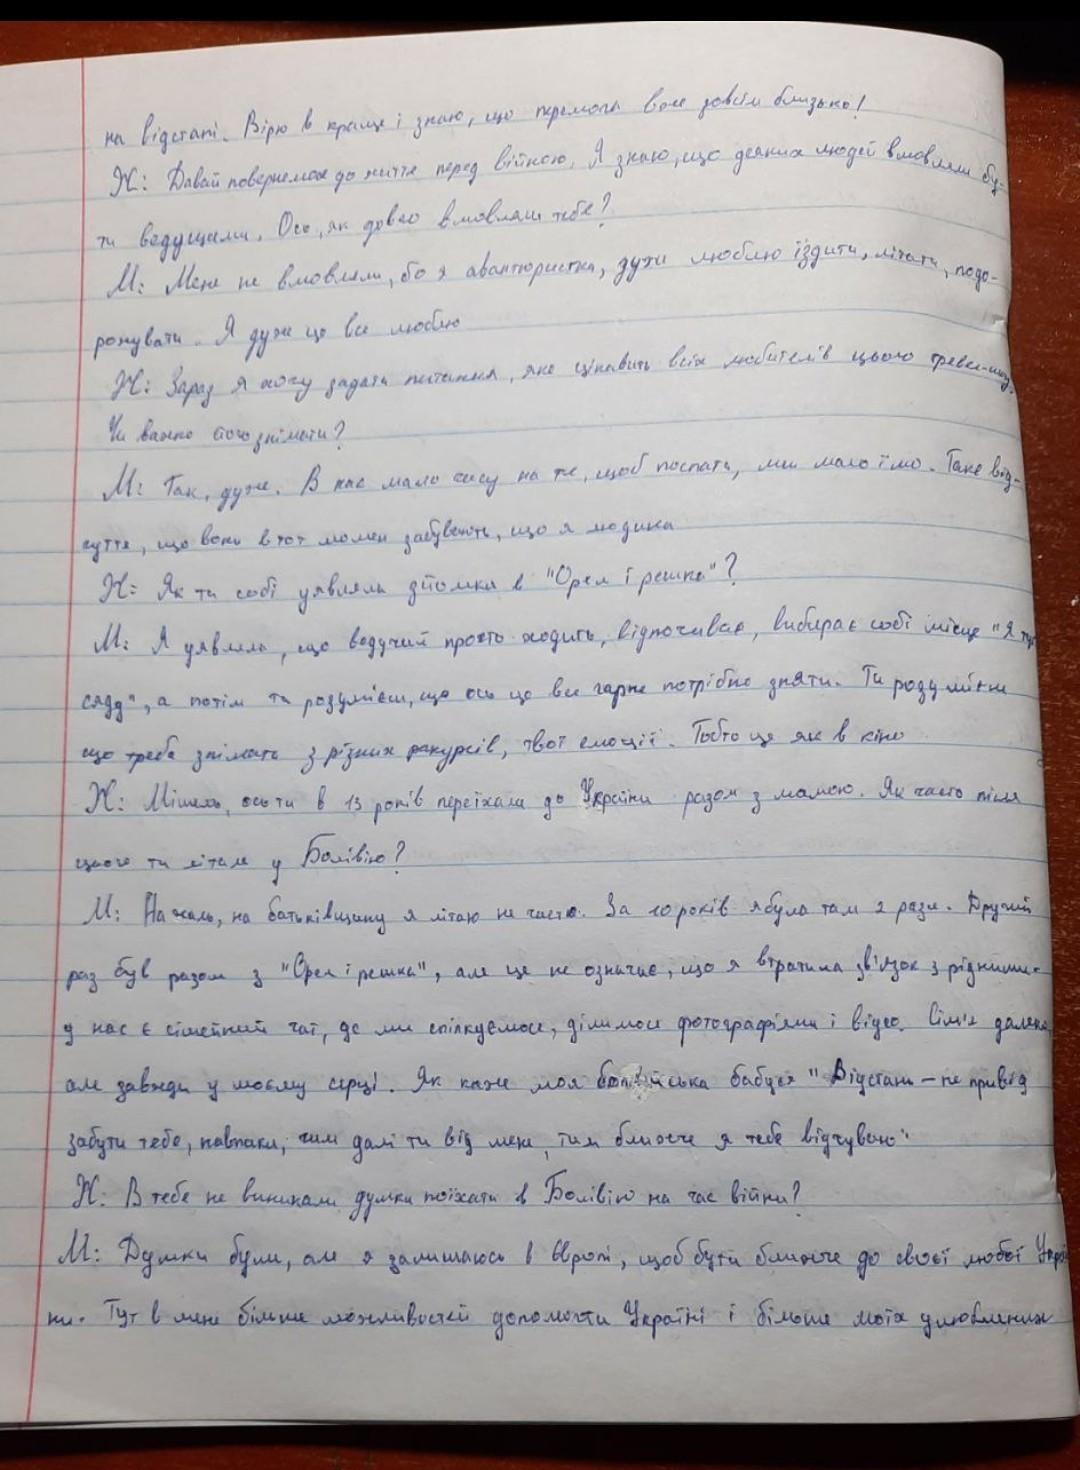 на відстані. Вірю в краще і знаю, що перемога вже зовсім близько!
Ж: Давай повернемося до життя перед війною. Я знаю, що деяких людей вмовляли бу-
ти ведущими. Ось, як довго вмовляли тебе?
М: Мене не вмовляли, бо я авантюристка, дуже люблю їздити, літати, подо-
рожувати. Я дуже це все люблю
Ж: Зараз я хочу задати питання, яке цікавить всіх любителів цього тревел-шоу.
Чи важко його знімати?
М: Так, дуже. В нас мало часу на те, щоб поспати, ми мало їмо. Таке від-
чуття, що вони в тот момен забувають, що я людина
Ж: Як ти собі уявляла зйомки в "Орел і решка"?
М: Я уявляла, що ведучий просто ходить, відпочиває, вибирає собі місце "Я тут
сяду", а потім ти розумієш, що ось це все гарне потрібно зняти. Ти розумієш
що треба знімать з різних ракурсів, твої емоції. Тобто це як в кіно
Ж: Мішель, ось ти в 13 років переїхала до України разом з мамою. Як часто після
цього ти літала у Болівію?
М: На жаль, на батьківщину я літаю не часто. За 10 років я була там 2 рази. Другий
раз був разом з "Орел і решка", але це не означає, що я втратила зв'язок з рідними-
у нас є сімейний чат, де ми спілкуємося, ділимося фотографіями і відео. Сім'я далеко
але завжди у моєму серці. Як каже моя болівійська бабуся "Відстань – не привід
забути тебе, навпаки, чим далі ти від мене, тим ближче я тебе відчуваю"
Ж: В тебе не виникали думки поїхати в Болівію на час війни?
М: Думки були, але я залишаюсь в Європі, щоб бути ближче до своєї любої Украї
ни. Тут в мене більше можливостей допомогти Україні і більше моїх улюблених